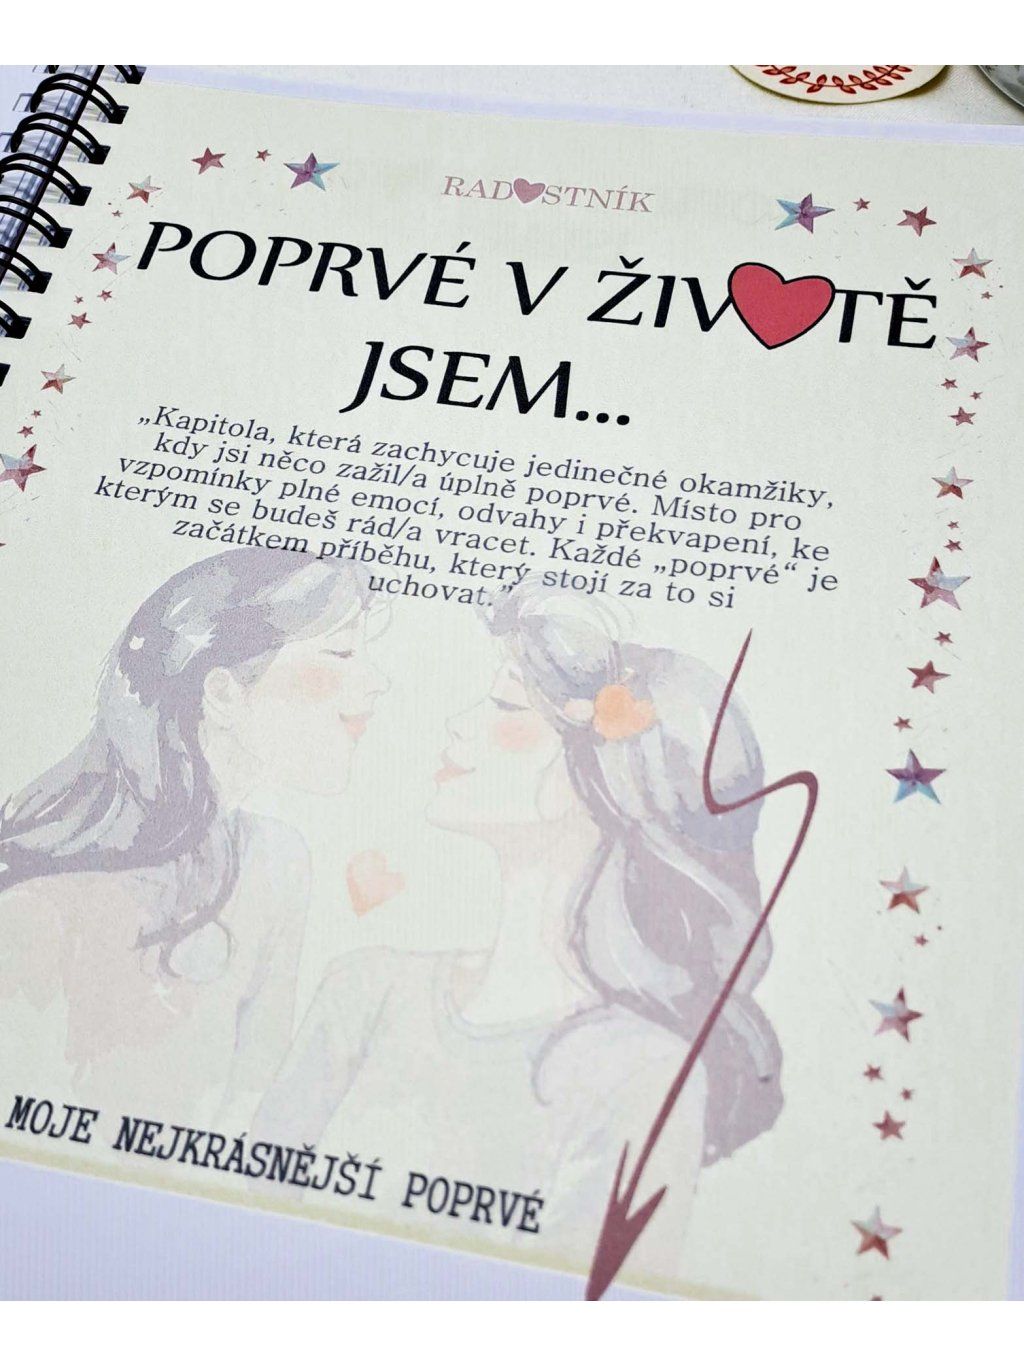 RADOSTNÍK
POPRVÉ V ŽIVOTĚ
JSEM...
„Kapitola, která zachycuje jedinečné okamžiky,
kdy jsi něco zažil/a úplně poprvé. Místo pro
vzpomínky plné emocí, odvahy i překvapení, ke
kterým se budeš rád/a vracet. Každé „poprvé“ je
začátkem příběhu, který stojí za to si
uchovat.”
MOJE NEJKRÁSNĚJŠÍ POPRVÉ